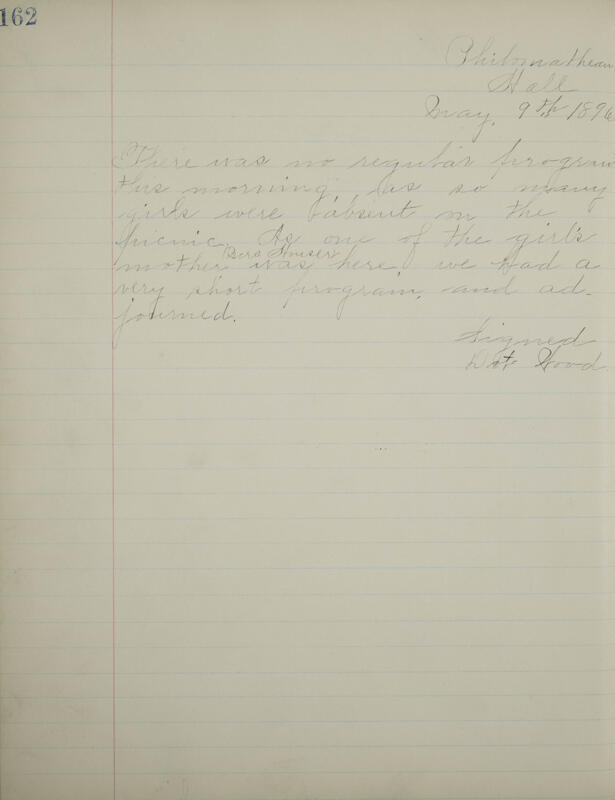 162
Philomathean
Hall
May, 9th 1896
There was no regular program
this morning, as so many
girls were absent on the
picnic. As one of the girl's
mother was here we had a
very short program, and ad-
journed.
Signed
Dot Wood